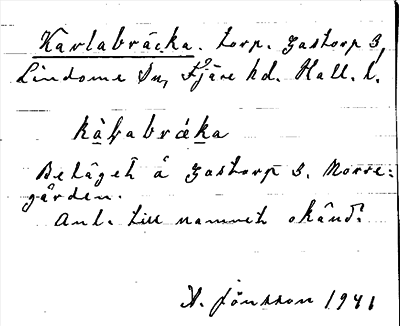 Karlabräcka. torp. Fastorp 3,
Lindome Sn, Fjäre hd. Hall. l.
kàḷabrǽka
Beläget å Fastorp 3. Norre-
gården.
Anl. till namnet okänd.
A. Jönsson 1941